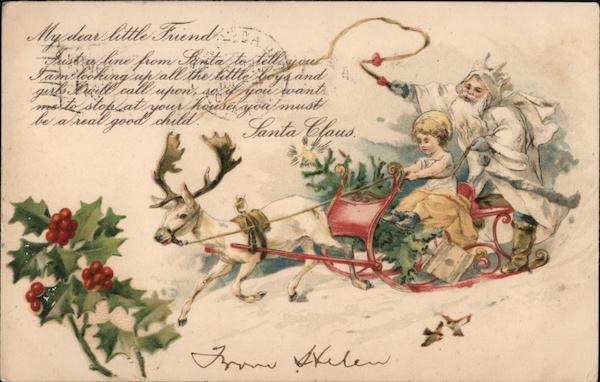 My dear little Friend
Just a line from Santa to tell you
I am looking up all the little boys and
girls I will call upon, so if you want
me to stop at your house, you must
be a real good child.
Santa Claus.
From Helen